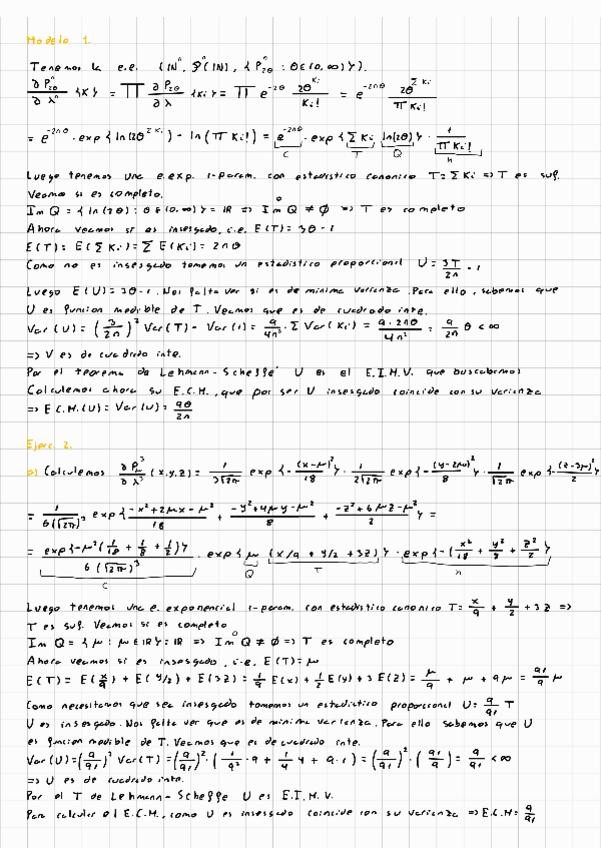 Modelo 1.
Tenemos la e.e. (ℕⁿ, 𝒫(ℕ), { Pⁿ₂θ : θ∈(0,∞) }).
∂Pⁿ₂θ/∂λⁿ {x} = ∏ ∂P₂θ/∂λ {xi} = ∏ e^(-2θ) 2θ^(Xi)/Xi! = e^(-2nθ) 2θ^(ΣXi)/∏Xi!
= e^(-2nθ) · exp{ ln(2θ^(ΣXi)) - ln(∏Xi!) } = e^(-2nθ) · exp{ ΣXi ln(2θ) } · 1/∏Xi!
C T Q h
Luego tenemos una e.exp. 1-param. con estadistico canonico T = ΣXi => T es suf.
Veamos si es completo.
Im Q = { ln(2θ) : θ∈(0,∞) } = ℝ => Im Q ≠ ∅ => T es completo
Ahora veamos si es insesgado, i.e. E(T) = 3θ - 1
E(T) = E(ΣXi) = Σ E(Xi) = 2nθ
Como no es insesgado tomemos un estadistico proporcional U = 3T/2n - 1
Luego E(U) = 3θ-1. Nos falta ver si es de minima varianza. Para ello, sabemos que
U es funcion medible de T. Veamos que es de cuadrado inte.
Var(U) = (3/2n)² Var(T) - Var(1) = 9/4n² · Σ Var(Xi) = 9·2nθ/4n² = 9/2n θ < ∞
=> U es de cuadrado inte.
Por el teorema de Lehmann-Scheffe' U es el E.I.M.V. que buscabamos
Calculemos ahora su E.C.M., que por ser U insesgado coincide con su varianza
=> E.C.M.(U) = Var(U) = 9θ/2n
Ejerc. 2.
a) Calculemos ∂P³μ/∂λ³ (x,y,z) = 1/3√2π exp{-(x-μ)²/18} · 1/2√2π exp{-(y-2μ)²/8} · 1/√2π exp{-(z-3μ)²/2}
= 1/6(√2π)³ exp{ (-x²+2μx-μ²)/18 + (-y²+4μy-μ²)/8 + (-z²+6μz-μ²)/2 } =
= exp{-μ²(1/18 + 1/8 + 1/2)}/6(√2π)³ · exp{ μ (x/9 + y/2 + 3z) } · exp{-(x²/18 + y²/8 + z²/2)}
C Q T h
Luego tenemos una e. exponencial 1-param. con estadistico canonico T = x/9 + y/2 + 3z =>
T es suf. Veamos si es completo
Im Q = { μ : μ∈ℝ } = ℝ => Im Q ≠ ∅ => T es completo
Ahora veamos si es insesgado, i.e. E(T) = μ
E(T) = E(x/9) + E(y/2) + E(3z) = 1/9 E(x) + 1/2 E(y) + 3 E(z) = μ/9 + μ + 9μ = 91/9 μ
Como necesitamos que sea insesgado tomemos un estadistico proporcional U = 9/91 T
U es insesgado. Nos falta ver que es de minima varianza. Para ello sabemos que U
es funcion medible de T. Veamos que es de cuadrado inte.
Var(U) = (9/91)² Var(T) = (9/91)² · (1/9² · 9 + 1/4 · 4 + 9·1) = (9/91)² · (91/9) = 9/91 < ∞
=> U es de cuadrado inte.
Por el T de Lehmann-Scheffe U es E.I.M.V.
Para calcular el E.C.M., como U es insesgado coincide con su varianza => E.C.M = 9/91